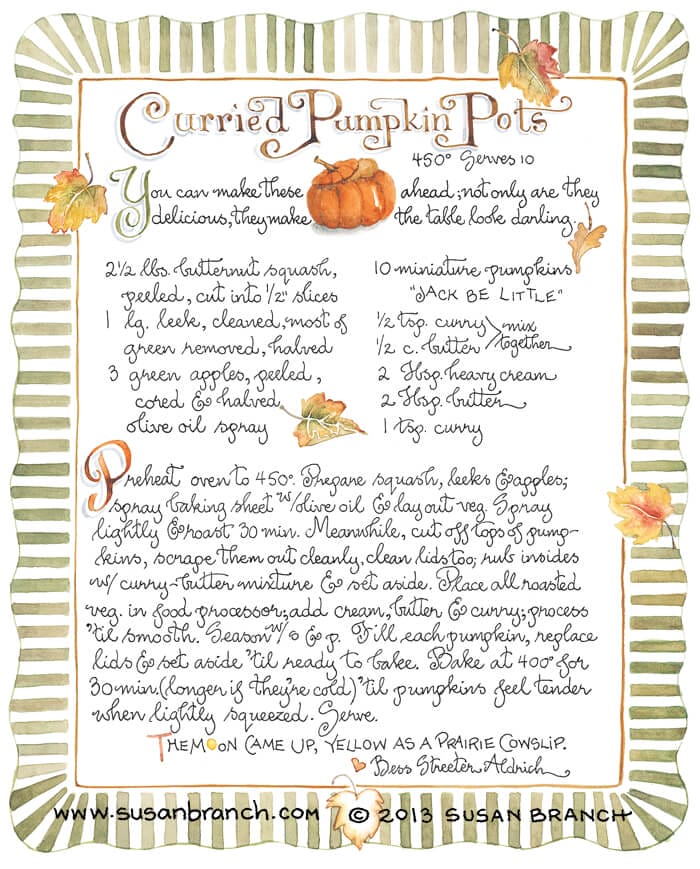 Curried Pumpkin Pots
450° Serves 10
You can make these ahead; not only are they
delicious, they make the table look darling.
2 1/2 lbs. butternut squash,
peeled, cut into 1/2" slices
1 lg. leek, cleaned, most of
green removed, halved
3 green apples, peeled,
cored & halved
olive oil spray
10 miniature pumpkins
"JACK BE LITTLE"
1/2 tsp. curry
1/2 c. butter
mix
together
2 Tbsp. heavy cream
2 Tbsp. butter
1 tsp. curry
Preheat oven to 450°. Prepare squash, leeks & apples;
spray baking sheet w/olive oil & lay out veg. Spray
lightly & roast 30 min. Meanwhile, cut off tops of pump-
kins, scrape them out cleanly, clean lids too; rub insides
w/ curry-butter mixture & set aside. Place all roasted
veg. in food processor; add cream, butter & curry; process
'til smooth. Season w/ s & p. Fill each pumpkin, replace
lids & set aside 'til ready to bake. Bake at 400° for
30 min. (longer if they're cold) 'til pumpkins feel tender
when lightly squeezed. Serve.
THE MOON CAME UP, YELLOW AS A PRAIRIE COWSLIP.
Bess Streeter Aldrich
www.susanbranch.com © 2013 SUSAN BRANCH